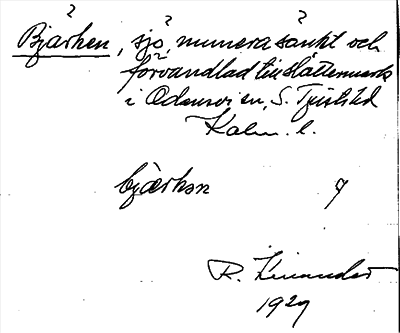 Bjärken, sjö, numera sänkt och
förvandlad till slåttermark
i Odensvi sn, S. Tjusts hd
Kalm. l.
bjærkən 7
R. Kinander
1929